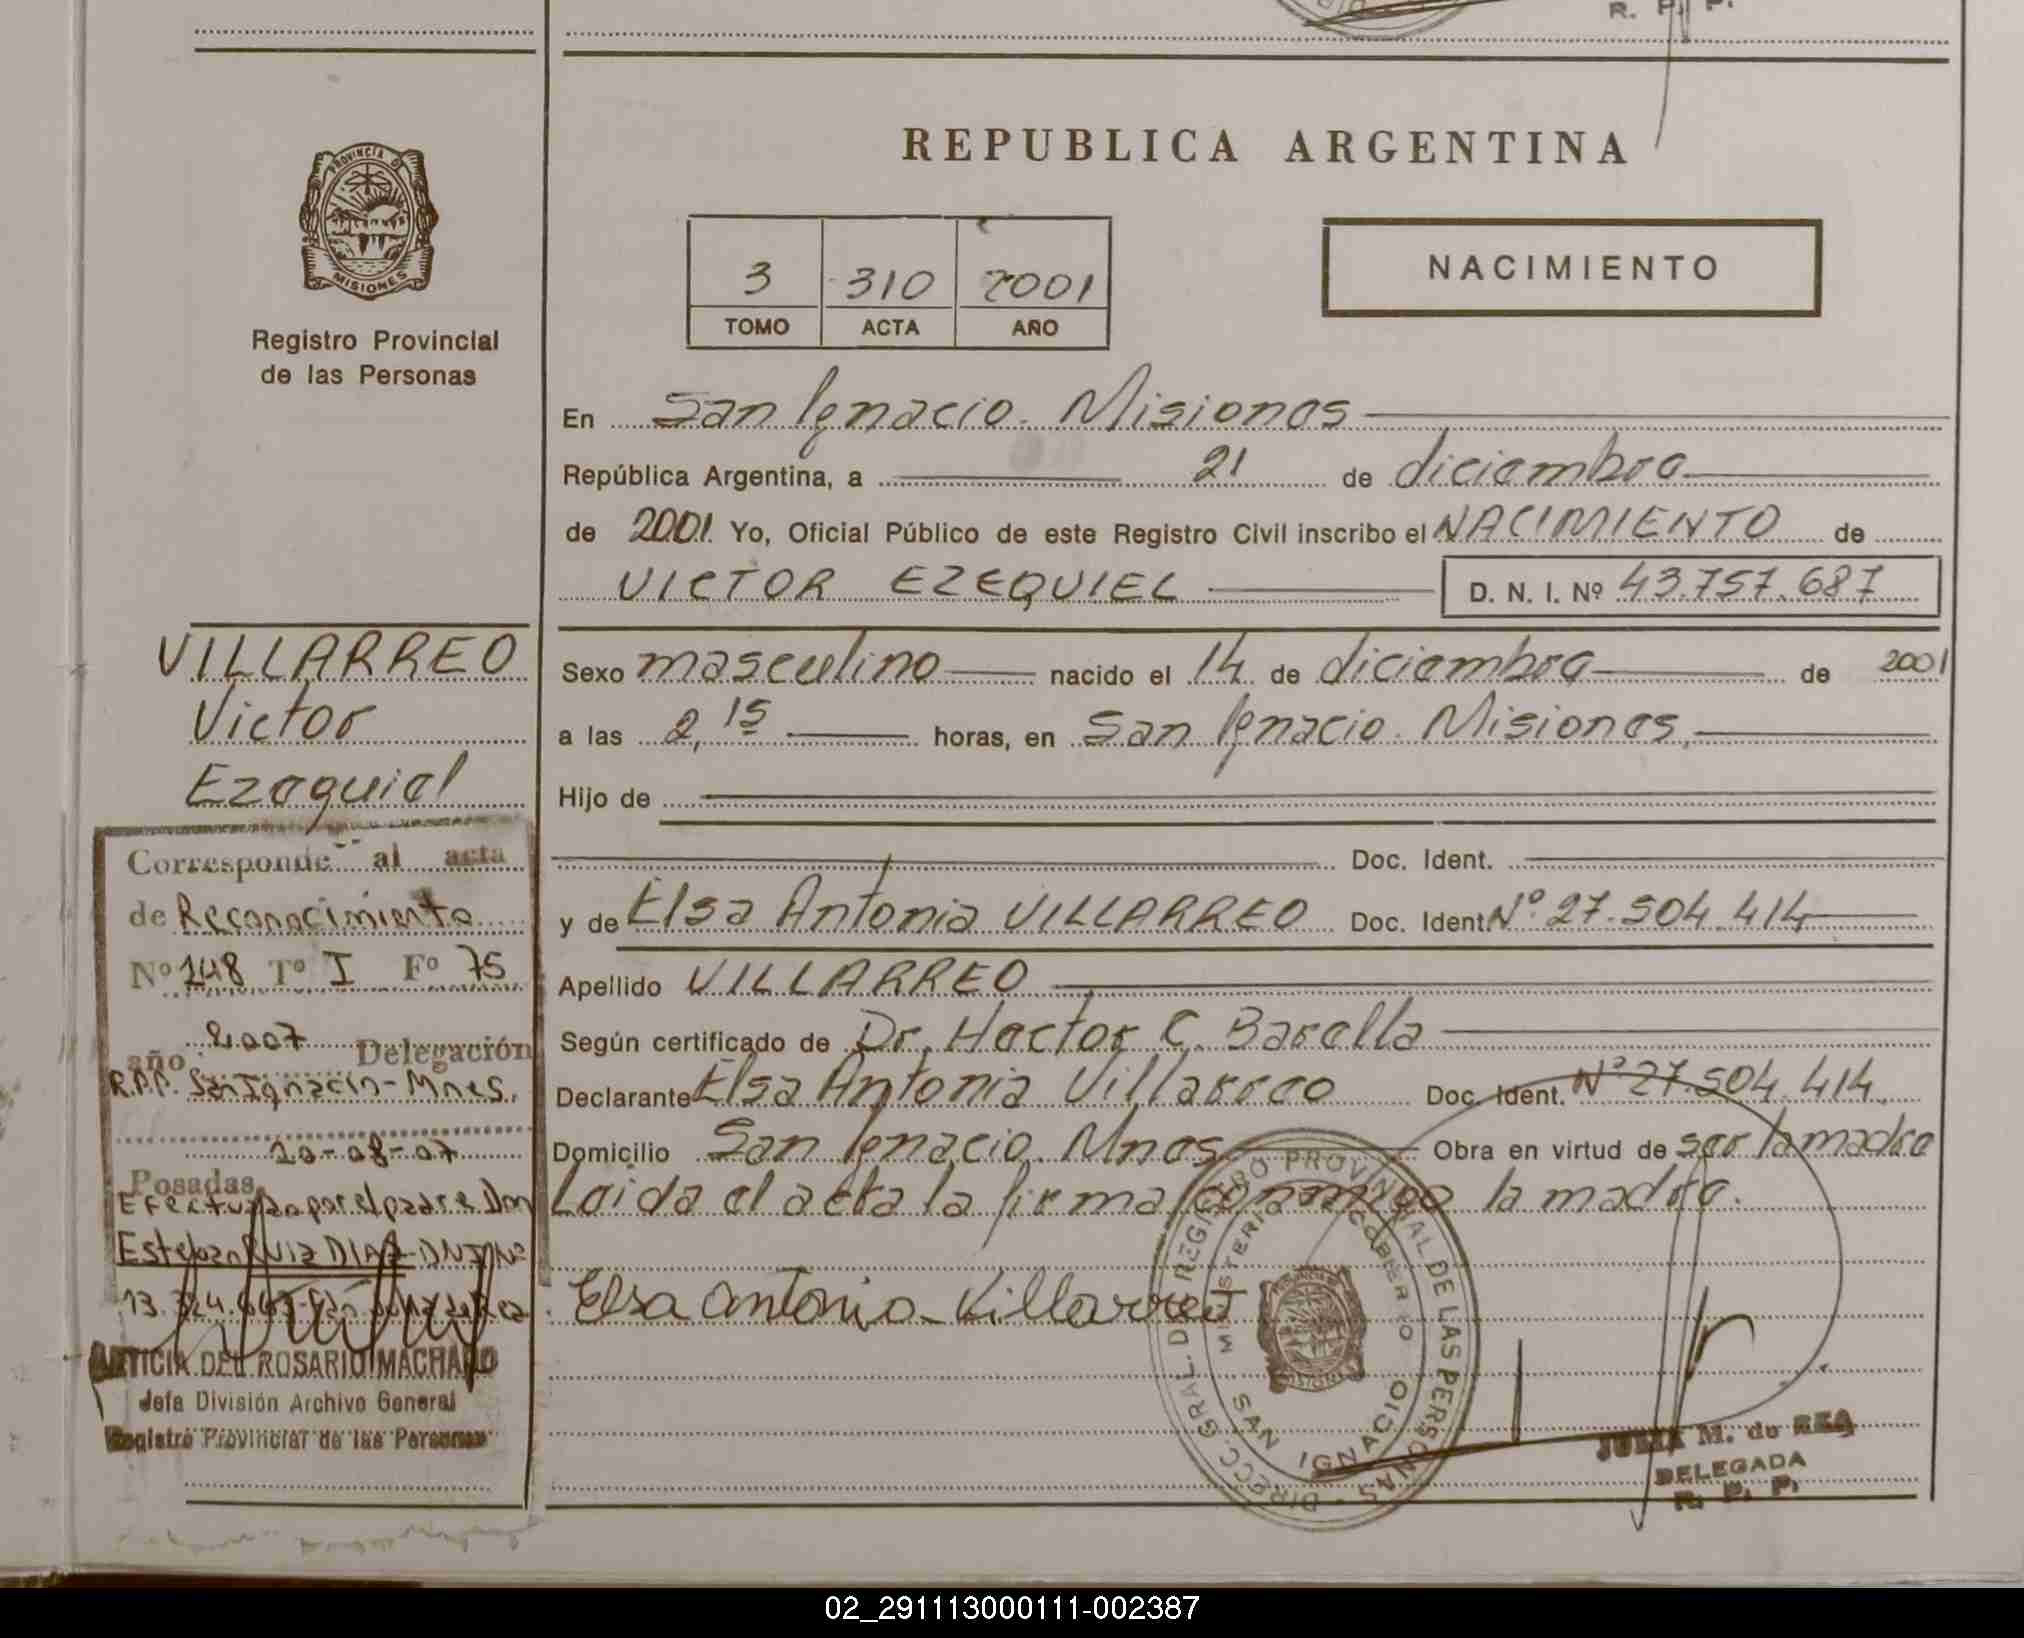 R. P. P.
REPUBLICA ARGENTINA
PROVINCIA DE
MISIONES
Registro Provincial
de las Personas
3 310 2001
TOMO ACTA AÑO
NACIMIENTO
En San Ignacio. Misiones
República Argentina, a 21 de diciembre
de 2001 Yo, Oficial Público de este Registro Civil inscribo el NACIMIENTO de
VICTOR EZEQUIEL D. N. I. Nº 43.757.687
Sexo masculino nacido el 14 de diciembre de 2001
a las 2,15 horas, en San Ignacio. Misiones.
Hijo de
Doc. Ident.
y de Elsa Antonia VILLARREO Doc. Ident. Nº 27.504.414
Apellido VILLARREO
Según certificado de Dr. Hector C. Barella
Declarante Elsa Antonia Villarreo Doc. Ident. Nº 27.504.414.
Domicilio San Ignacio. Mnes Obra en virtud de ser la madre
Leida el acta la firma conmigo la madre.
Elsa Antonia Villarreo
DIRECC. GRAL. DE REGISTRO PROVINCIAL DE LAS PERSONAS
MINISTERIO GOBIERNO
SAN IGNACIO
JULIA M. de REA
DELEGADA
R. P. P.
VILLARREO
Victor
Ezequiel
Corresponde al acta
de Reconocimiento
Nº 148 Tº I Fº 75
año 2007 Delegación
R.P.P. San Ignacio - Mnes.
10-08-07
Posadas,
Efectuado por el padre Don
Esteban Ruiz DIAZ - DNI Nº
13.
LETICIA DEL ROSARIO MACHADO
Jefa División Archivo General
Registro Provincial de las Personas
02_291113000111-002387